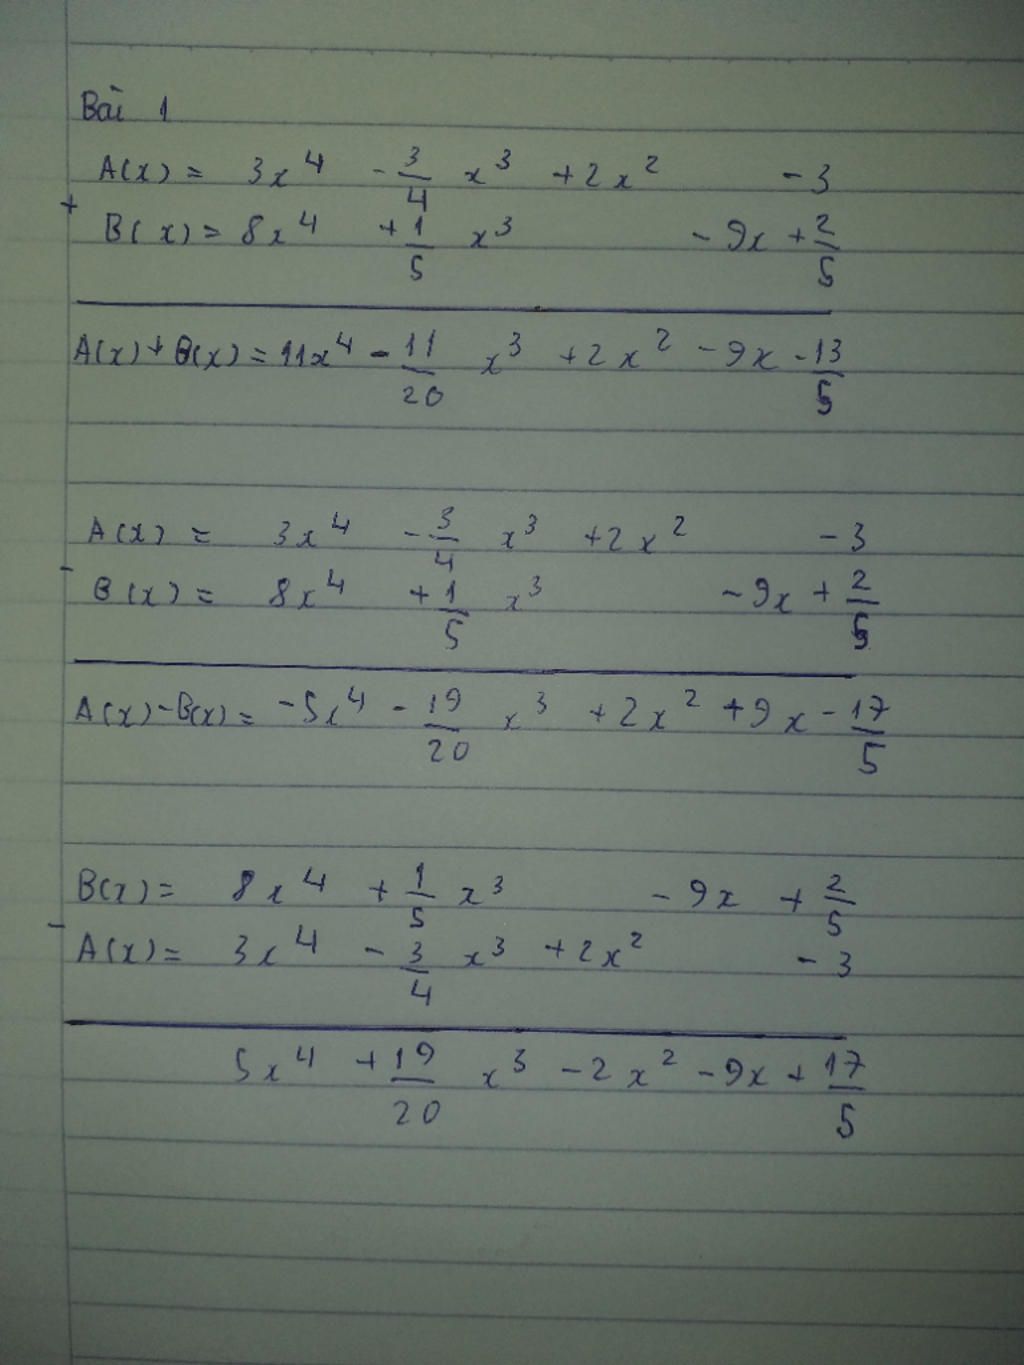 Bài 1
A(x) = 3x⁴ - 3/4 x³ + 2x² - 3
+
B(x) = 8x⁴ + 1/5 x³ - 9x + 2/5
A(x) + B(x) = 11x⁴ - 11/20 x³ + 2x² - 9x - 13/5
A(x) = 3x⁴ - 3/4 x³ + 2x² - 3
-
B(x) = 8x⁴ + 1/5 x³ - 9x + 2/5
A(x) - B(x) = -5x⁴ - 19/20 x³ + 2x² + 9x - 17/5
B(x) = 8x⁴ + 1/5 x³ - 9x + 2/5
-
A(x) = 3x⁴ - 3/4 x³ + 2x² - 3
5x⁴ + 19/20 x³ - 2x² - 9x + 17/5